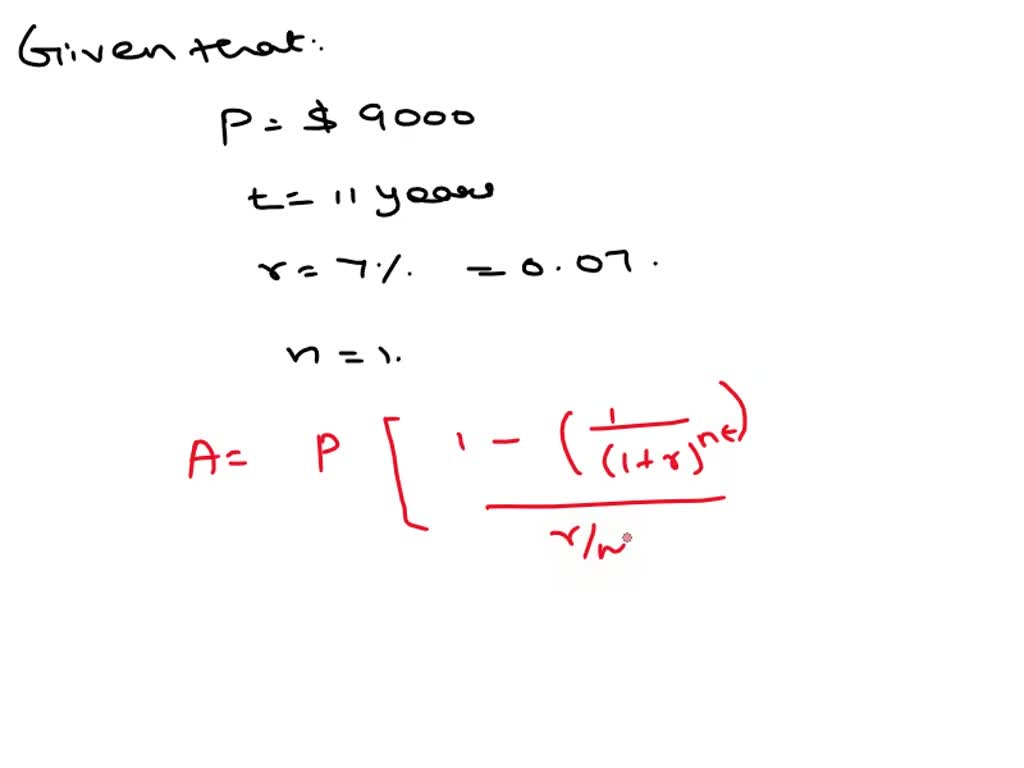 Given that:
P = $ 9000
t = 11 years
r = 7% = 0.07.
n = 1.
A = P [ 1 - ( 1 / (1+r)^nt ) / r/n